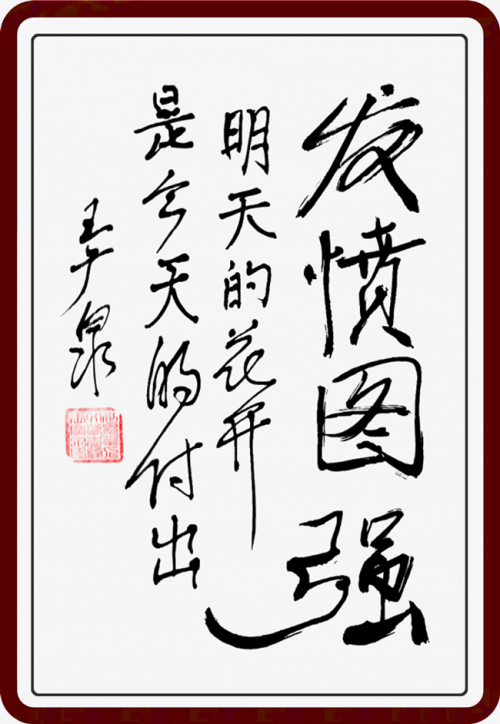 发愤图强
明天的花开
是今天的付出